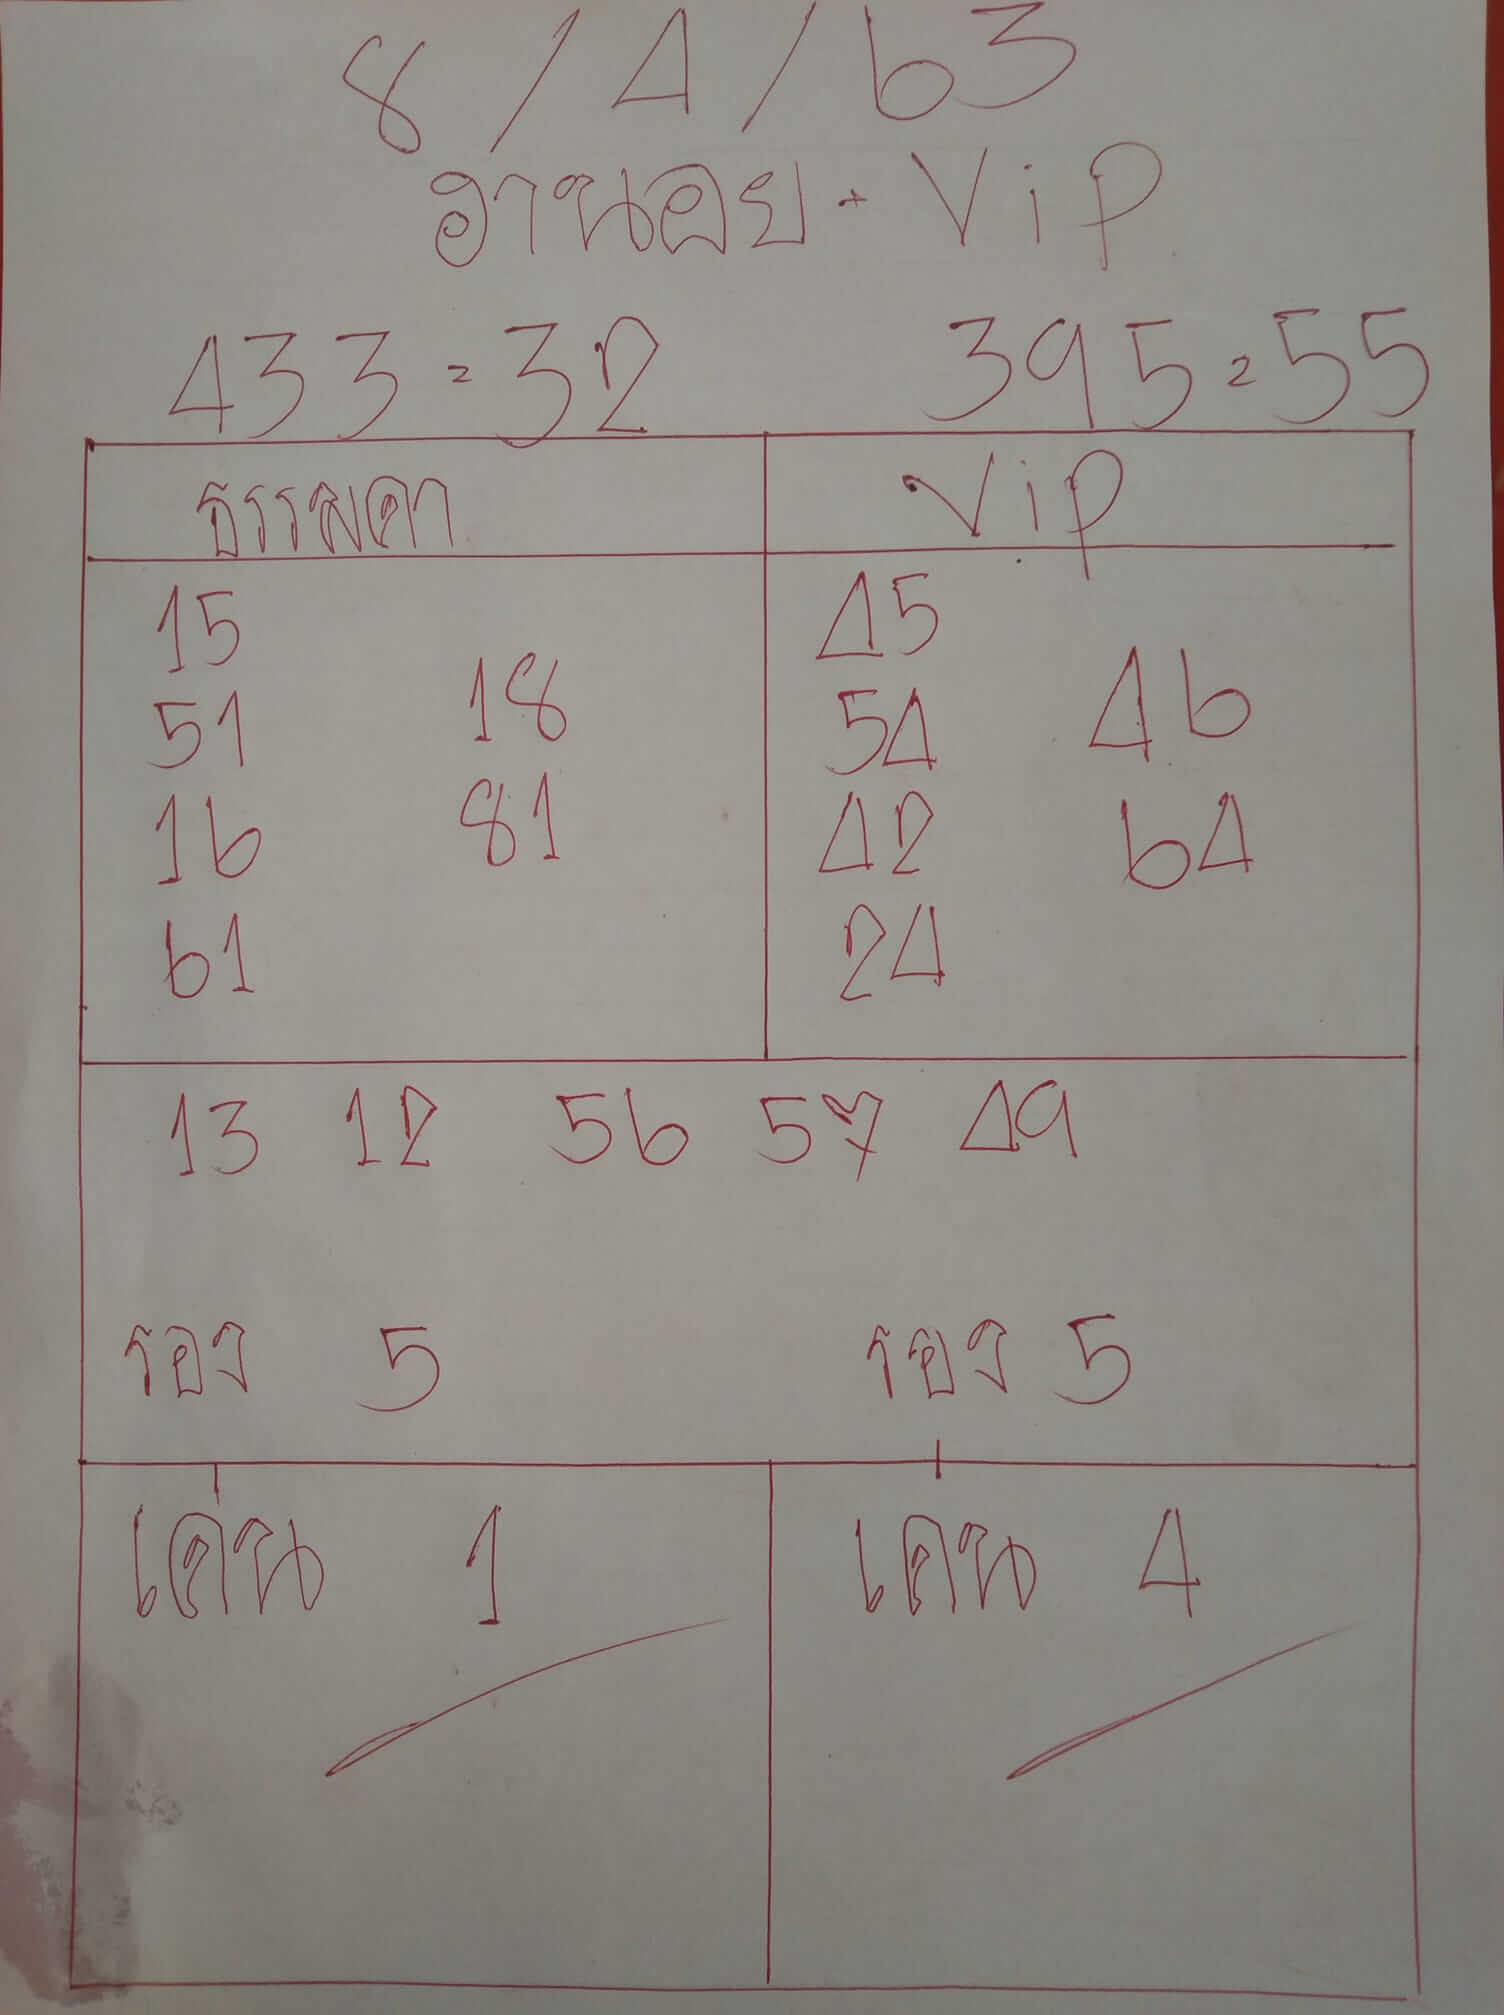 8/4/63
ฮานอย - Vip
433 = 32 395 = 55
ธรรมดา Vip
15 45
51 18 54 46
16 81 42 64
61 24
13 12 56 57 49
รอง 5 รอง 5
เด่น 1 เด่น 4